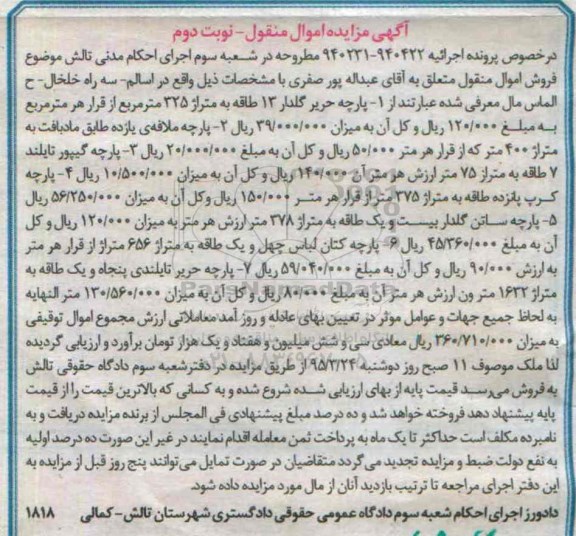 آگهی مزایده اموال منقول - نوبت دوم
در خصوص پرونده اجرائیه ۹۴۰۴۲۲-۹۴۰۲۳۱ مطروحه در شعبه سوم اجرای احکام مدنی تالش موضوع
فروش اموال منقول متعلق به آقای عبداله پور صفری با مشخصات ذیل واقع در اسالم- سه راه خلخال- ح
الماس مال معرفی شده عبارتند از ۱- پارچه حریر گلدار ۱۳ طاقه به متراژ ۳۲۵ مترمربع از قرار هر مترمربع
به مبلغ ۱۲۰/۰۰۰ ریال و کل آن به میزان ۳۹/۰۰۰/۰۰۰ ریال ۲- پارچه ملافه‌ی یازده طابق مادبافت به
متراژ ۴۰۰ متر که از قرار هر متر ۵۰/۰۰۰ ریال و کل آن به مبلغ ۲۰/۰۰۰/۰۰۰ ریال ۳- پارچه گیپور تایلند
۷ طاقه به متراژ ۷۵ متر ارزش هر متر آن ۱۴۰/۰۰۰ ریال و کل آن به میزان ۱۰/۵۰۰/۰۰۰ ریال ۴- پارچه
کرپ پانزده طاقه به متراژ ۳۷۵ متراژ قرار هر متر ۱۵۰/۰۰۰ ریال وکل آن به میزان ۵۶/۲۵۰/۰۰۰ ریال
۵- پارچه ساتن گلدار بیست و یک طاقه به متراژ ۳۷۸ متر ارزش هر متر به میزان ۱۲۰/۰۰۰ ریال و کل
آن به مبلغ ۴۵/۳۶۰/۰۰۰ ریال ۶- پارچه کتان لباس چهل و یک طاقه به متراژ ۶۵۶ متراژ از قرار هر متر
به ارزش ۹۰/۰۰۰ ریال و کل آن به مبلغ ۵۹/۰۴۰/۰۰۰ ریال ۷- پارچه حریر تایلندی پنجاه و یک طاقه به
متراژ ۱۶۳۲ متر ون ارزش هر متر آن به مبلغ ۸۰/۰۰۰ ریال و کل آن به میزان ۱۳۰/۵۶۰/۰۰۰ متر النهایه
به لحاظ جمیع جهات و عوامل موثر در تعیین بهای عادله و روز آمد معاملاتی ارزش مجموع اموال توقیفی
به میزان ۳۶۰/۷۱۰/۰۰۰ ریال معادل سی و شش میلیون و هفتاد و یک هزار تومان برآورد و ارزیابی گردیده
لذا ملک موصوف ۱۱ صبح روز دوشنبه ۹۵/۳/۲۴ از طریق مزایده در دفتر شعبه سوم دادگاه حقوقی تالش
به فروش می‌رسد قیمت پایه از بهای ارزیابی شده شروع شده و به کسانی که بالاترین قیمت را از قیمت
پایه پیشنهاد دهد فروخته خواهد شد و ده درصد مبلغ پیشنهادی فی المجلس از برنده مزایده دریافت و به
نامبرده مکلف است حداکثر تا یک ماه به پرداخت ثمن معامله اقدام نمایند در غیر این صورت ده درصد اولیه
به نفع دولت ضبط و مزایده تجدید می‌گردد متقاضیان در صورت تمایل می‌توانند پنج روز قبل از مزایده به
این دفتر اجرای مراجعه تا ترتیب بازدید آنان از مال مورد مزایده داده شود.
دادورز اجرای احکام شعبه سوم دادگاه عمومی حقوقی دادگستری شهرستان تالش- کمالی ۱۸۱۸